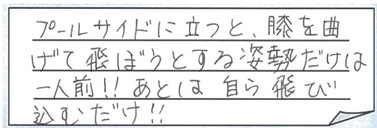 プールサイドに立つと、膝を曲
げて飛ぼうとする姿勢だけは
一人前!!あとは自ら飛び
込むだけ!!